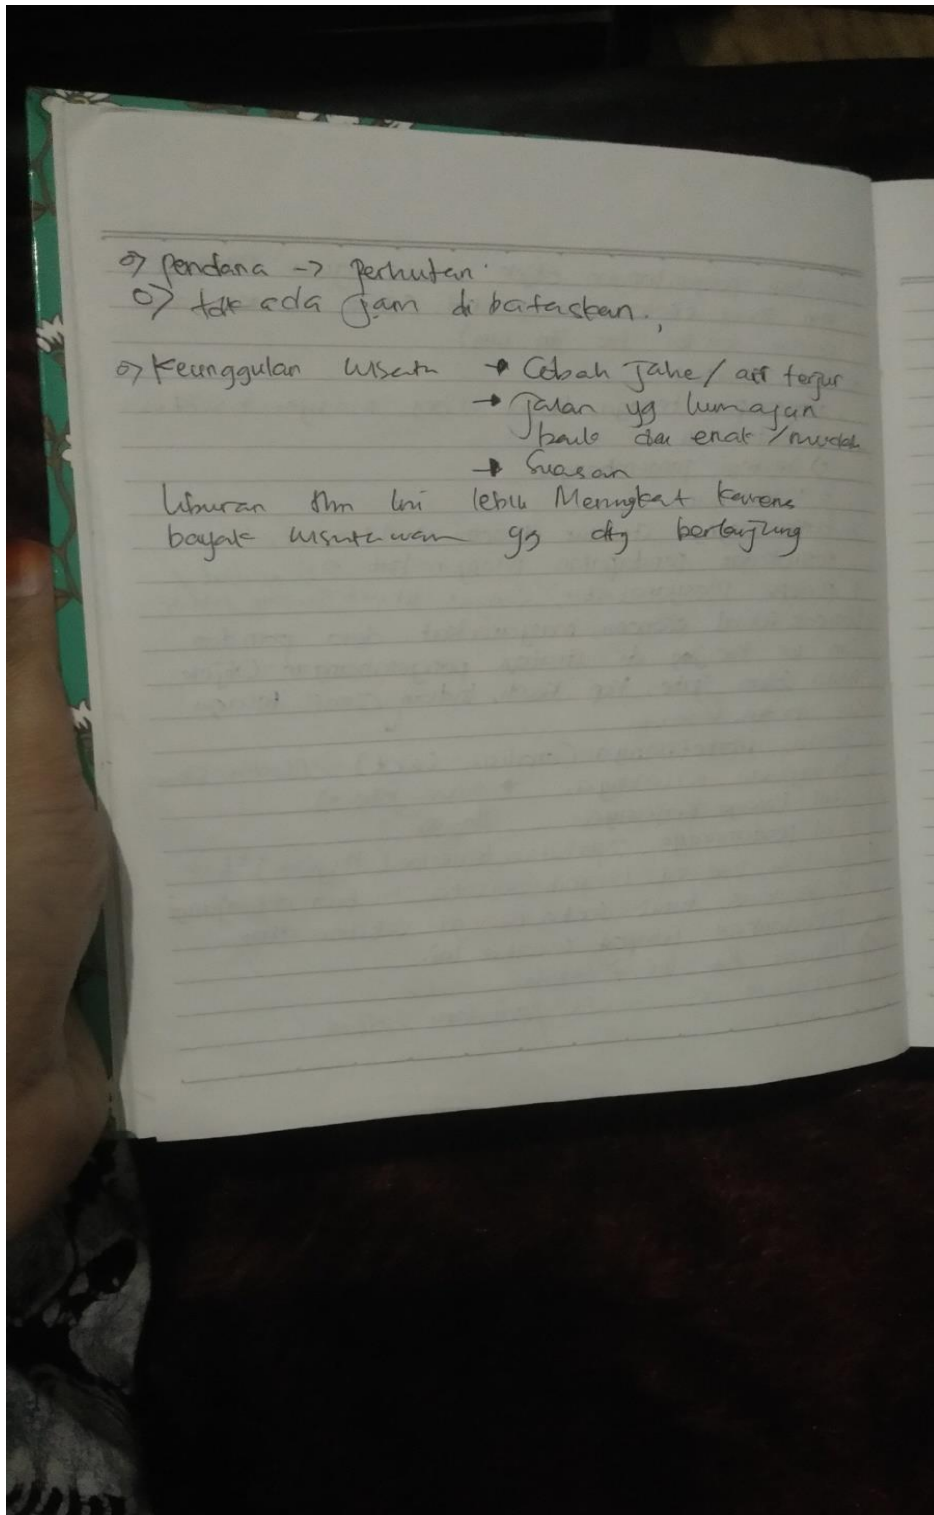 => pendana -> perhutan.
=> tdk ada jam di bataskan.,
=> Keunggulan wisata → Cobah Jahe / air terjun
→ Jalan yg lumajan
baik dan enak / mudah
→ Suasan
liburan thn ini lebih Meningkat karena
bayak wisatawan yg dtg berkunjung